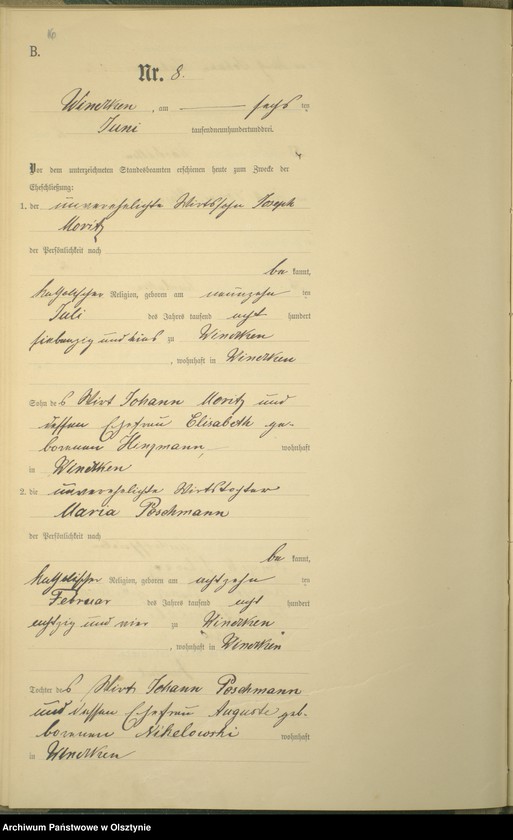 B.
Nr. 8.
Windtken, am sechs ten
Juni tausendneunhundertunddrei.
Vor dem unterzeichneten Standesbeamten erschienen heute zum Zwecke der
Eheschließung:
1. der unverehelichte Wirtssohn Joseph
Moritz
der Persönlichkeit nach
be kannt,
katholischer Religion, geboren am neunzehn ten
Juli des Jahres tausend acht hundert
siebenzig und zu Windtken
, wohnhaft in Windtken
Sohn des Wirt Johann Moritz und
dessen Ehefrau Elisabeth ge-
borenen Hinzmann wohnhaft
in Windtken
2. die unverehelichte Wirtstochter
Maria Poschmann
der Persönlichkeit nach
be kannt,
katholischer Religion, geboren am achtzehn ten
Februar des Jahres tausend acht hundert
achtzig und vier zu Windtken
, wohnhaft in Windtken
Tochter des Wirt Johann Poschmann
und dessen Ehefrau Auguste geb-
borenen Nikelowski wohnhaft
in Windtken
Archiwum Państwowe w Olsztynie